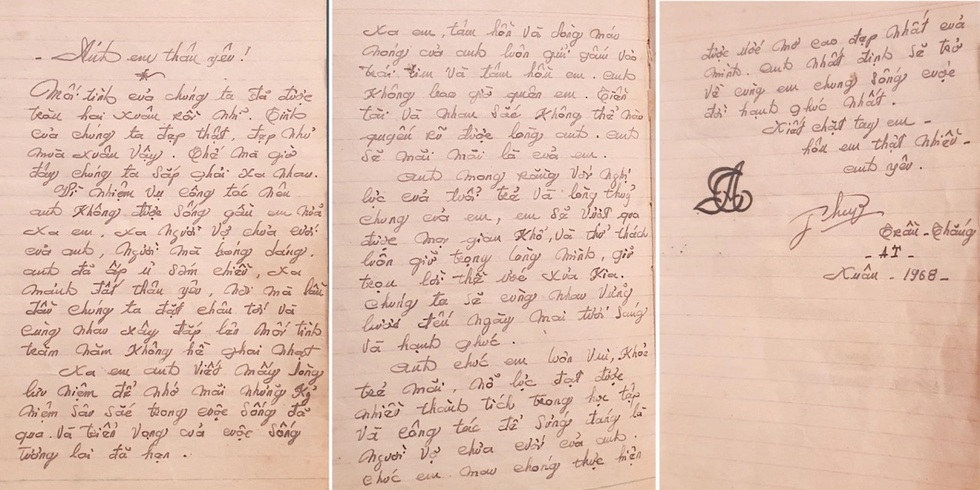 - Ánh em thân yêu !
Mối tình của chúng ta đã được
tròn hai xuân rồi nhỉ. Tình
của chúng ta đẹp thật, đẹp như
mùa xuân vậy. Thế mà giờ
đây chúng ta sắp phải xa nhau.
Vì nhiệm vụ công tác nên
anh không được sống gần em nữa
xa em, xa người vợ chưa cưới
của anh, người mà bóng dáng
anh đã ấp ủ sớm chiều, xa
mảnh đất thân yêu, nơi mà lần
đầu chúng ta đặt chân tới và
cùng nhau xây đắp lên mối tình
trăm năm không hề phai nhạt
Xa em anh viết mấy dòng
lưu niệm để nhớ mãi những kỷ
niệm sâu sắc trong cuộc sống đã
qua. Và triển vọng của cuộc sống
tương lai đã hẹn.
Xa em, tâm hồn và dòng máu
nóng của anh luôn gửi gắm vào
trái tim và tâm hồn em. Anh
không bao giờ quên em. Tiền
tài và nhan sắc không thể nào
quyến rũ được lòng anh. Anh
sẽ mãi mãi là của em.
Anh mong rằng với nghị
lực của tuổi trẻ và lòng thuỷ
chung của em, em sẽ vượt qua
được mọi gian khổ, và thử thách
luôn giữ trọng lòng mình, giữ
trọn lời thề ước xưa kia.
Chúng ta sẽ cùng nhau vững
bước đến ngày mai tươi sáng
và hạnh phúc.
Anh chúc em luôn vui, khoẻ
trẻ mãi, nỗ lực đạt được
nhiều thành tích trong học tập
và công tác để sống đáng là
người vợ chưa cưới của anh.
Chúc em mau chóng thực hiện
được ước mơ cao đẹp nhất của
mình. Anh nhất định sẽ trở
về cùng em chung sống cuộc
đời hạnh phúc nhất.
Xiết chặt tay em -
hôn em thật nhiều -
anh yêu.
Trần - Thắng
- AT -
Xuân - 1968 -